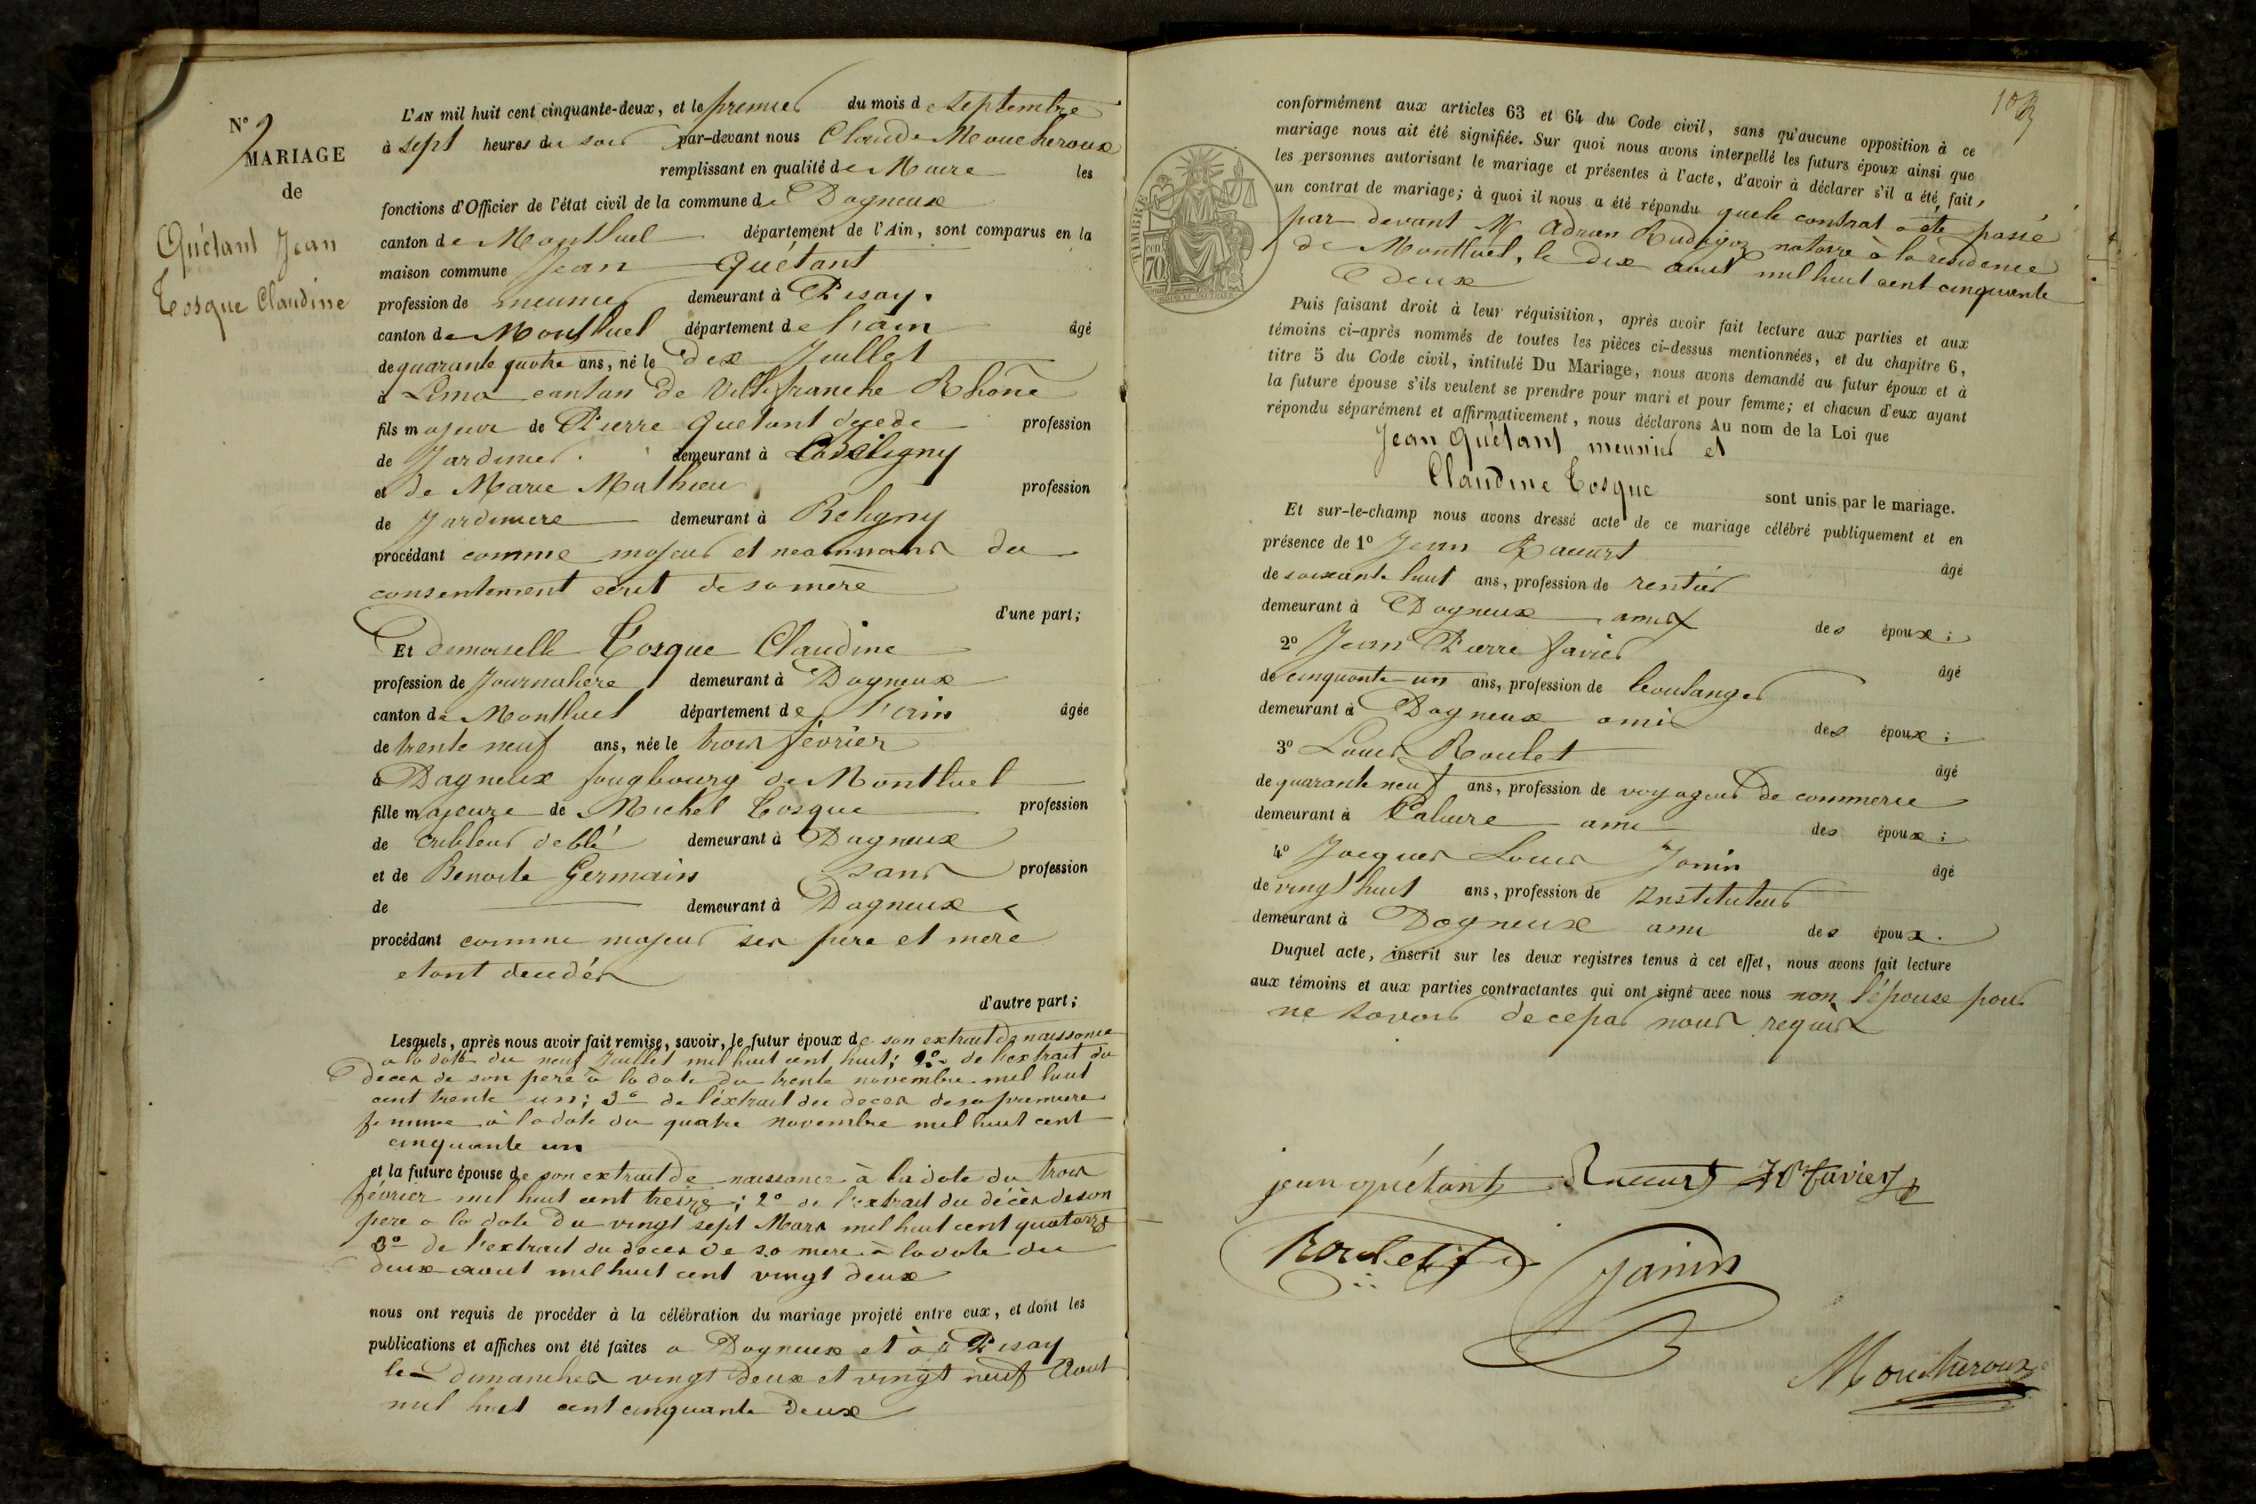 N° 9
MARIAGE
de
Quétant Jean
Cosque Claudine
L'AN mil huit cent cinquante-deux, et le premier du mois de septembre
à sept heures du soir par-devant nous Claude Moucheroux
remplissant en qualité de Maire les
fonctions d'Officier de l'état civil de la commune de Dagneux
canton de Montluel département de l'Ain, sont comparus en la
maison commune Jean Quétant
profession de meunier demeurant à Pisay.
canton de Montluel département de l'ain âgé
de quarante quatre ans, né le dix Juillet
à Lima canton de Villefranche Rhône
fils majeur de Pierre Quetant décédé profession
de Jardinier demeurant à Béligny
et de Marie Mathieu profession
de Jardiniere demeurant à Béligny
procédant comme majeur et neanmoins du
consentement écrit de sa mère
d'une part;
Et demoiselle Cosque Claudine
profession de Journaliere demeurant à Dagneux
canton de Montluel département de l'ain âgée
de trente neuf ans, née le trois février
à Dagneux fougbourg de Montluel
fille majeure de Michel Cosque profession
de cribleur de blé demeurant à Dagneux
et de Benoite Germain sans profession
de demeurant à Dagneux
procédant comme majeur ses père et mere
etant decedés
d'autre part;
Lesquels, après nous avoir fait remise, savoir, le futur époux de son extrait de naissance
a la date du neuf Juillet mil huit cent huit; 2° de l'extrait du
deces de son pere à la date du trente novembre mil huit
cent trente un; 3° de l'éxtrait du deces de sa premiere
femme à la date du quatre novembre mil huit cent
cinquante un
et la future épouse de son extrait de naissance à la date du trois
février mil huit cent treize; 2° de l'extrait du décès de son
pere a la date du vingt sept Mars mil huit cent quatorze
3° de l'extrait du deces de sa mere à la date du
deux aout mil huit cent vingt deux
nous ont requis de procéder à la célébration du mariage projeté entre eux, et dont les
publications et affiches ont été faites a Dagneux et à Pisay
les dimanches vingt deux et vingt neuf Aout
mil huit cent cinquante deux
103
TIMBRE
70
conformément aux articles 63 et 64 du Code civil, sans qu'aucune opposition à ce
mariage nous ait été signifiée. Sur quoi nous avons interpellé les futurs époux ainsi que
les personnes autorisant le mariage et présentes à l'acte, d'avoir à déclarer s'il a été fait,
un contrat de mariage; à quoi il nous a été répondu que le contrat a été passé
par devant Me Adrien Rudigoz notaire à la residence
de Montluel, le dix aout mil huit cent cinquante
deux
Puis faisant droit à leur réquisition, après avoir fait lecture aux parties et aux
témoins ci-après nommés de toutes les pièces ci-dessus mentionnées, et du chapitre 6,
titre 5 du Code civil, intitulé Du Mariage, nous avons demandé au futur époux et à
la future épouse s'ils veulent se prendre pour mari et pour femme; et chacun d'eux ayant
répondu séparément et affirmativement, nous déclarons Au nom de la Loi que
Jean Quétant meunier et
Claudine Cosque sont unis par le mariage.
Et sur-le-champ nous avons dressé acte de ce mariage célébré publiquement et en
présence de 1° Jean Racurt âgé
de soixante huit ans, profession de rentier
demeurant à Dagneux ami des époux;
2° Jean Pierre favier âgé
de cinquante un ans, profession de boulanger
demeurant à Dagneux ami des époux;
3° Louis Roulet âgé
de quarante neuf ans, profession de voyageur de commerce
demeurant à Caluire ami des époux;
4° Jacques Louis Janin âgé
de vingt huit ans, profession de Instituteur
demeurant à Dagneux ami des époux.
Duquel acte, inscrit sur les deux registres tenus à cet effet, nous avons fait lecture
aux témoins et aux parties contractantes qui ont signé avec nous non l'épouse pour
ne savoir de ce par nous requis
jean quétant Racurt JP favier
Roulet
Janin
Moucheroux